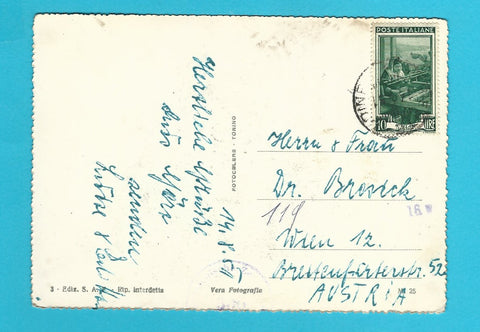 POSTE ITALIANE
10 LIRE
UDINE
14. 8. 51
Herzliche Grüsse
aus
senden
Herrn & Frau
Dr. Breseck
119
Wien 12.
Breitenfurterstr. 52
AUSTRIA
16 W
FOTOCELERE TORINO
3 - Ediz. S. - Rip. interdetta
Vera Fotografia
25